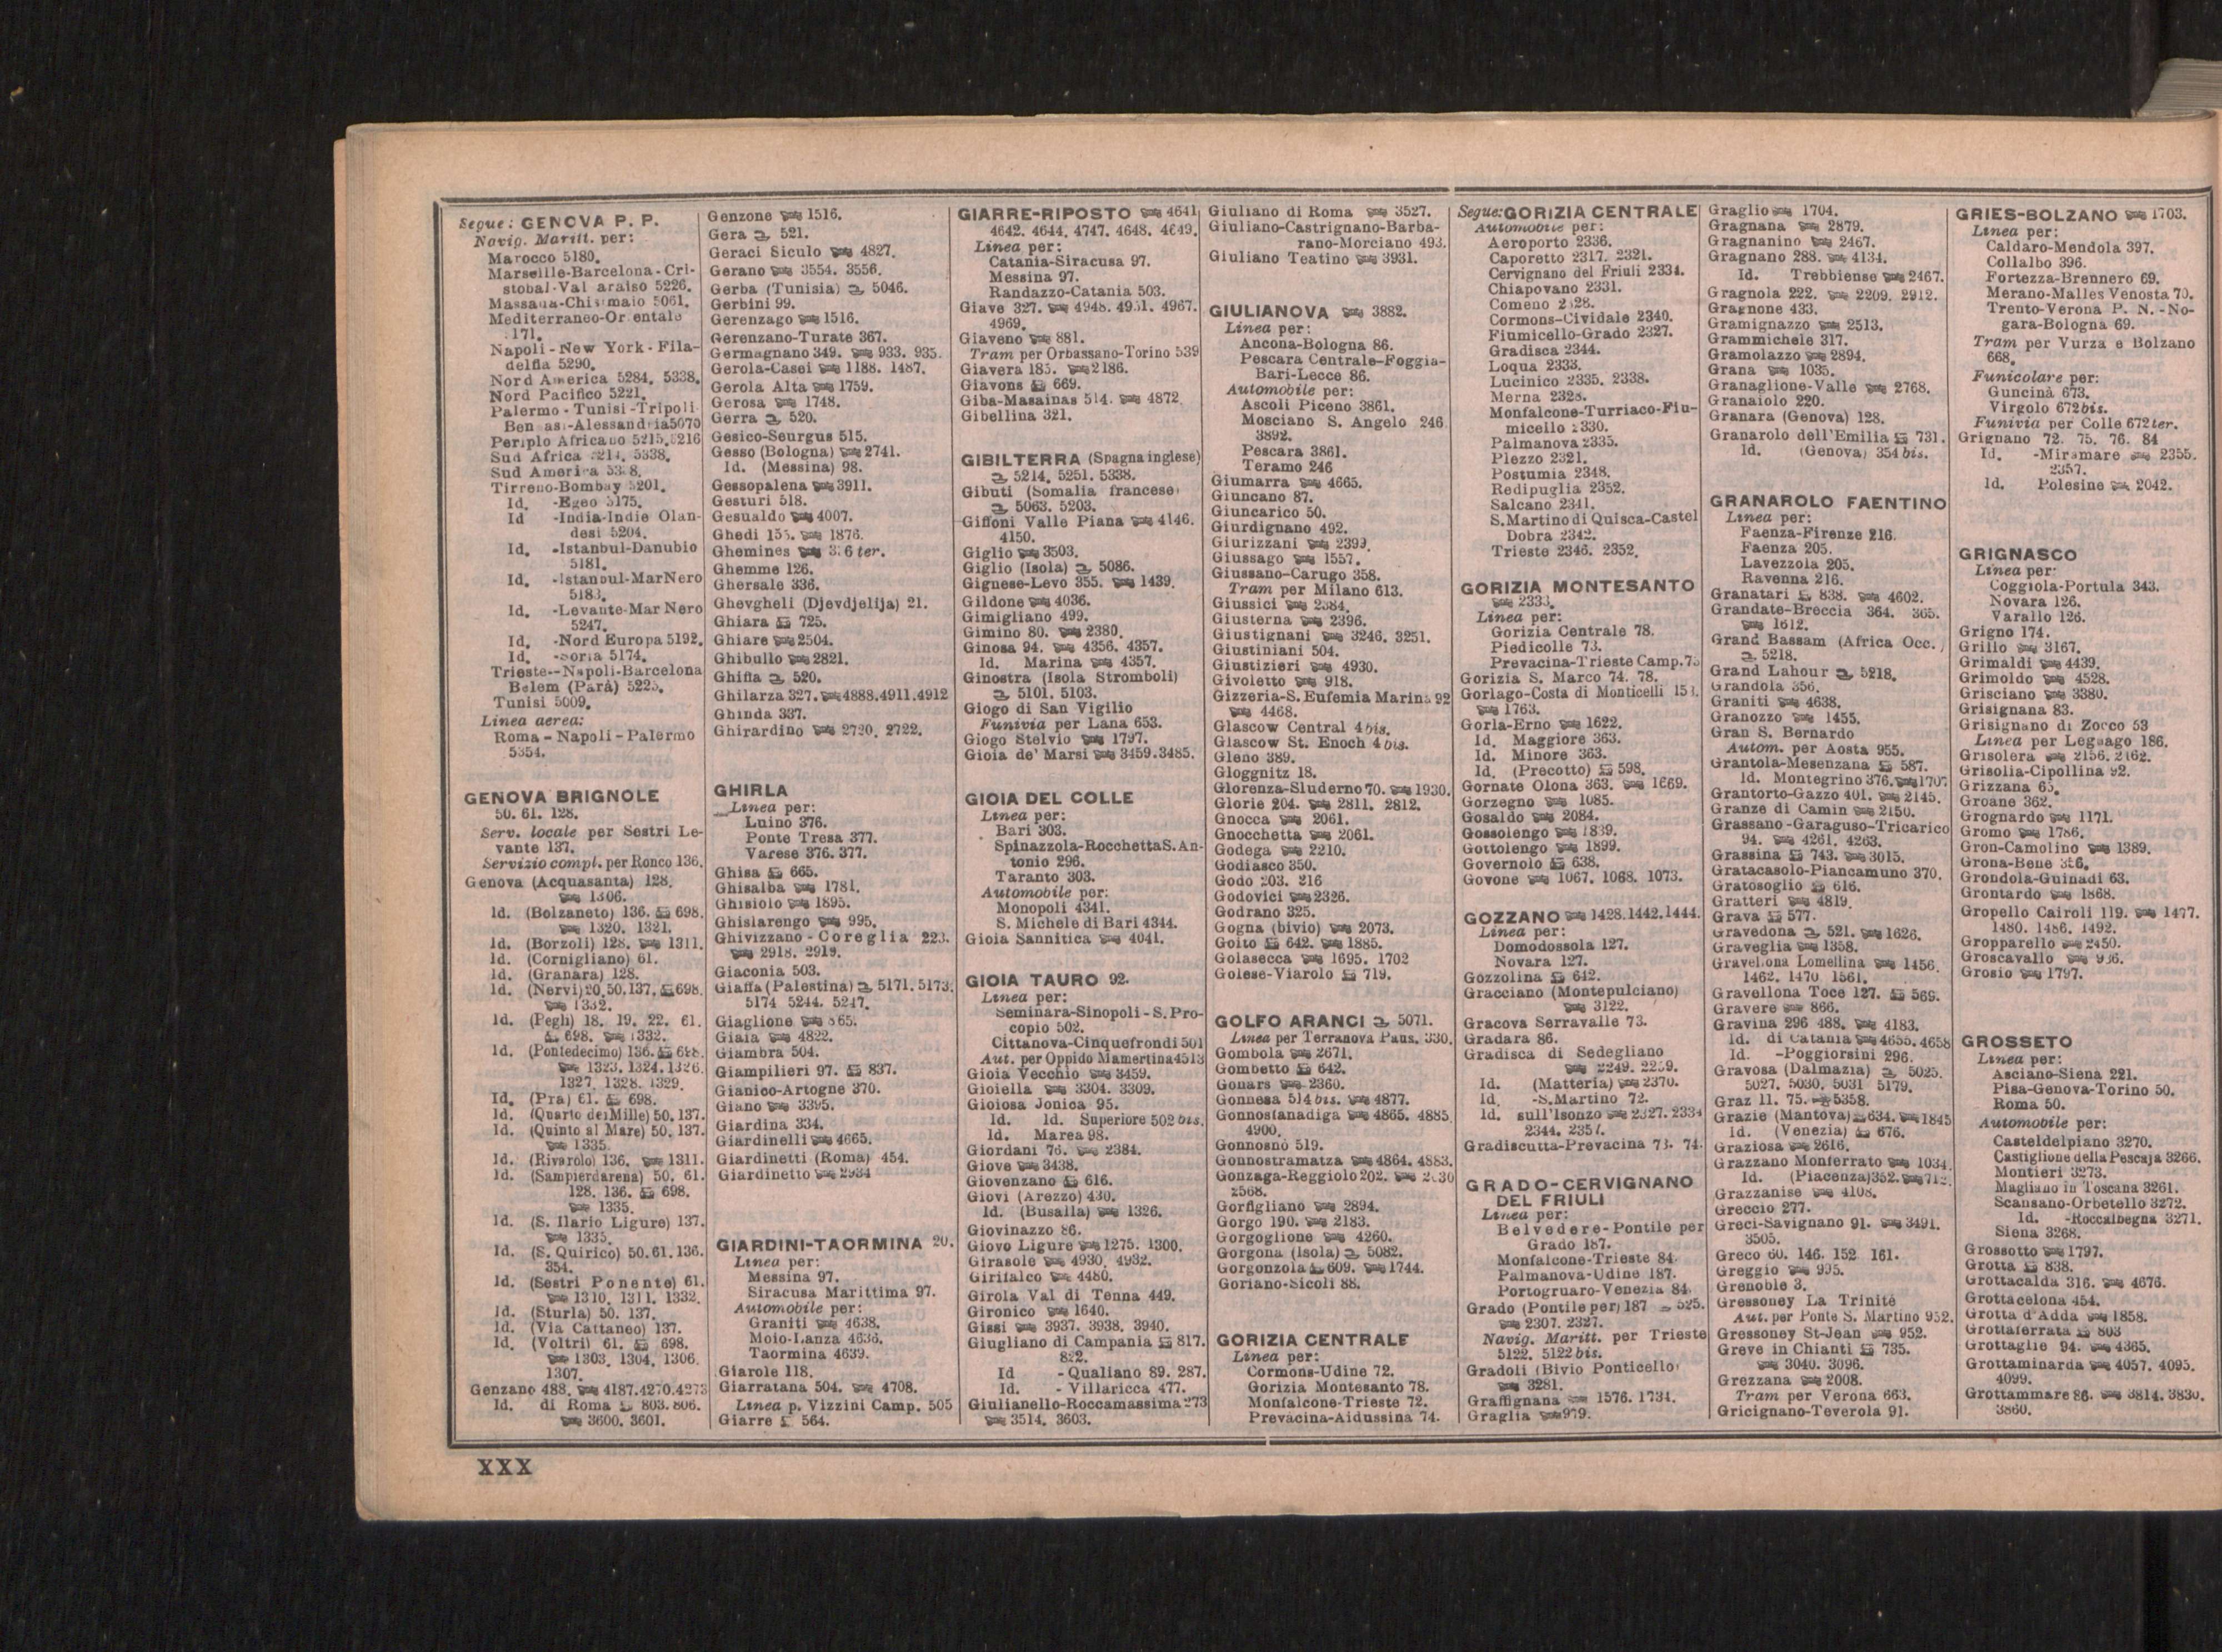 Segue: GENOVA P. P.
Navig. Maritt. per:
Marocco 5180.
Marseille-Barcelona-Cri-
stobal-Val araiso 5226.
Massaua-Chisimaio 5061.
Mediterraneo-Or entale
171.
Napoli-New York-Fila-
delfia 5290.
Nord America 5284. 5338.
Nord Pacifico 5221.
Palermo-Tunisi-Tripoli
Ben asi-Alessandria 5070
Periplo Africano 5215. 5216
Sud Africa 5214. 5338.
Sud America 5338.
Tirreno-Bombay 5201.
Id. -Egeo 5175.
Id -India-Indie Olan-
desi 5204.
Id. -Istanbul-Danubio
5181.
Id. -Istanbul-MarNero
5183.
Id. -Levante-Mar Nero
5247.
Id. -Nord Europa 5192.
Id. -Soria 5174.
Trieste--Napoli-Barcelona
Belem (Parà) 5225.
Tunisi 5009.
Linea aerea:
Roma-Napoli-Palermo
5354.
GENOVA BRIGNOLE
50. 61. 128.
Serv. locale per Sestri Le-
vante 137.
Servizio compl. per Ronco 136.
Genova (Acquasanta) 128.
1306.
Id. (Bolzaneto) 136. 698.
1320. 1321.
Id. (Borzoli) 128. 1311.
Id. (Cornigliano) 61.
Id. (Granara) 128.
Id. (Nervi) 20. 50. 137. 698.
1332.
Id. (Pegli) 18. 19. 22. 61.
698. 1332.
Id. (Pontedecimo) 136. 698.
1323. 1324. 1326.
1327. 1328. 1329.
Id. (Prà) 61. 698.
Id. (Quarto dei Mille) 50. 137.
Id. (Quinto al Mare) 50. 137.
1335.
Id. (Rivarolo) 136. 1311.
Id. (Sampierdarena) 50. 61.
128. 136. 698.
1335.
Id. (S. Ilario Ligure) 137.
1335.
Id. (S. Quirico) 50. 61. 136.
354.
Id. (Sestri Ponente) 61.
1310. 1311. 1332.
Id. (Sturla) 50. 137.
Id. (Via Cattaneo) 137.
Id. (Voltri) 61. 698.
1303. 1304. 1306.
1307.
Genzano 488. 4187. 4270. 4273
Id. di Roma 803. 806.
3600. 3601.
Genzone 1516.
Gera 521.
Geraci Siculo 4827.
Gerano 3554. 3556.
Gerba (Tunisia) 5046.
Gerbini 99.
Gerenzago 1516.
Gerenzano-Turate 367.
Germagnano 349. 933. 935.
Gerola-Casei 1188. 1487.
Gerola Alta 1759.
Gerosa 1748.
Gerra 520.
Gesico-Seurgus 515.
Gesso (Bologna) 2741.
Id. (Messina) 98.
Gessopalena 3911.
Gesturi 518.
Gesualdo 4007.
Ghedi 155. 1876.
Ghemines 336 ter.
Ghemme 126.
Ghersale 336.
Ghevgheli (Djevdjelija) 21.
Ghiara 725.
Ghiare 2504.
Ghibullo 2821.
Ghiffa 520.
Ghilarza 327. 4888. 4911. 4912
Ghinda 337.
Ghirardino 2720. 2722.
GHIRLA
Linea per:
Luino 376.
Ponte Tresa 377.
Varese 376. 377.
Ghisa 665.
Ghisalba 1781.
Ghisiolo 1895.
Ghislarengo 995.
Ghivizzano-Coreglia 223.
2918. 2919.
Giaconia 503.
Giaffa (Palestina) 5171. 5173.
5174 5244. 5247.
Giaglione 865.
Giaia 4822.
Giambra 504.
Giampilieri 97. 837.
Gianico-Artogne 370.
Giano 3395.
Giardina 334.
Giardinelli 4665.
Giardinetti (Roma) 454.
Giardinetto 2934
GIARDINI-TAORMINA 20.
Linea per:
Messina 97.
Siracusa Marittima 97.
Automobile per:
Graniti 4638.
Moio-Lanza 4636.
Taormina 4639.
Giarole 118.
Giarratana 504. 4708.
Linea p. Vizzini Camp. 505
Giarre 564.
GIARRE-RIPOSTO 4641
4642. 4644. 4747. 4648. 4649.
Linea per:
Catania-Siracusa 97.
Messina 97.
Randazzo-Catania 503.
Giave 327. 4948. 4951. 4967.
4969.
Giaveno 881.
Tram per Orbassano-Torino 539
Giavera 185. 2186.
Giavons 669.
Giba-Masainas 514. 4872.
Gibellina 321.
GIBILTERRA (Spagna inglese)
5214. 5251. 5338.
Gibuti (Somalia francese)
5063. 5203.
Giffoni Valle Piana 4146.
4150.
Giglio 3503.
Giglio (Isola) 5086.
Gignese-Levo 355. 1439.
Gildone 4036.
Gimigliano 499.
Gimino 80. 2380.
Ginosa 94. 4356. 4357.
Id. Marina 4357.
Ginostra (Isola Stromboli)
5101. 5103.
Giogo di San Vigilio
Funivia per Lana 653.
Giogo Stelvio 1797.
Gioia de' Marsi 3459. 3485.
GIOIA DEL COLLE
Linea per:
Bari 303.
Spinazzola-Rocchetta S. An-
tonio 296.
Taranto 303.
Automobile per:
Monopoli 4341.
S. Michele di Bari 4344.
Gioia Sannitica 4041.
GIOIA TAURO 92.
Linea per:
Seminara-Sinopoli-S. Pro-
copio 502.
Cittanova-Cinquefrondi 501
Aut. per Oppido Mamertina 4513
Gioia Vecchio 3459.
Gioiella 3304. 3309.
Gioiosa Jonica 95.
Id. Id. Superiore 502 bis.
Id. Marea 98.
Giordani 76. 2384.
Giove 3438.
Giovenzano 616.
Giovi (Arezzo) 430.
Id. (Busalla) 1326.
Giovinazzo 86.
Giovo Ligure 1275. 1300.
Girasole 4930. 4932.
Girifalco 4480.
Girola Val di Tenna 449.
Gironico 1640.
Gissi 3937. 3938. 3940.
Giugliano di Campania 817.
822.
Id - Qualiano 89. 287.
Id. - Villaricca 477.
Giulianello-Roccamassima 273
3514. 3603.
Giuliano di Roma 3527.
Giuliano-Castrignano-Barba-
rano-Morciano 493.
Giuliano Teatino 3931.
GIULIANOVA 3882.
Linea per:
Ancona-Bologna 86.
Pescara Centrale-Foggia-
Bari-Lecce 86.
Automobile per:
Ascoli Piceno 3861.
Mosciano S. Angelo 246
3892.
Pescara 3861.
Teramo 246
Giumarra 4665.
Giuncano 87.
Giuncarico 50.
Giurdignano 492.
Giurizzani 2399.
Giussago 1557.
Giussano-Carugo 358.
Tram per Milano 613.
Giussici 2384.
Giusterna 2396.
Giustignani 3246. 3251.
Giustiniani 504.
Giustizieri 4930.
Givoletto 918.
Gizzeria-S. Eufemia Marina 92
4468.
Glascow Central 4 bis.
Glascow St. Enoch 4 bis.
Gleno 389.
Gloggnitz 18.
Glorenza-Sluderno 70. 1930.
Glorie 204. 2811. 2812.
Gnocca 2061.
Gnocchetta 2061.
Godega 2210.
Godiasco 350.
Godo 203. 216
Godovici 2326.
Godrano 325.
Gogna (bivio) 2073.
Goito 642. 1885.
Golasecca 1695. 1702
Golese-Viarolo 719.
GOLFO ARANCI 5071.
Linea per Terranova Paus. 330.
Gombola 2671.
Gombetto 642.
Gonars 2360.
Gonnesa 514 bis. 4877.
Gonnosfanadiga 4865. 4885
4900.
Gonnosnò 519.
Gonnostramatza 4864. 4883.
Gonzaga-Reggiolo 202.
2568.
Gorfigliano 2894.
Gorgo 190. 2183.
Gorgoglione 4260.
Gorgona (Isola) 5082.
Gorgonzola 609. 1744.
Goriano-Sicoli 88.
GORIZIA CENTRALE
Linea per:
Cormons-Udine 72.
Gorizia Montesanto 78.
Monfalcone-Trieste 72.
Prevacina-Aidussina 74.
Segue: GORIZIA CENTRALE
Automobile per:
Aeroporto 2336.
Caporetto 2317. 2321.
Cervignano del Friuli 2334.
Chiapovano 2331.
Comeno 2328.
Cormons-Cividale 2340.
Fiumicello-Grado 2327.
Gradisca 2344.
Loqua 2333.
Lucinico 2335. 2338.
Merna 2328.
Monfalcone-Turriaco-Fiu-
micello 2330.
Palmanova 2335.
Plezzo 2321.
Postumia 2348.
Redipuglia 2352.
Salcano 2341.
S. Martino di Quisca-Castel
Dobra 2342.
Trieste 2346. 2352.
GORIZIA MONTESANTO
2333.
Linea per:
Gorizia Centrale 78.
Piedicolle 73.
Prevacina-Trieste Camp. 73
Gorizia S. Marco 74. 78.
Gorlago-Costa di Monticelli
1763.
Gorla-Erno 1622.
Id. Maggiore 363.
Id. Minore 363.
Id. (Precotto) 598.
Gornate Olona 363. 1669.
Gorzegno 1085.
Gosaldo 2084.
Gossolengo 1839.
Gottolengo 1899.
Governolo 638.
Govone 1067. 1068. 1073.
GOZZANO 1428. 1442. 1444.
Linea per:
Domodossola 127.
Novara 127.
Gozzolina 642.
Gracciano (Montepulciano)
3122.
Gracova Serravalle 73.
Gradara 86.
Gradisca di Sedegliano
2249. 2259.
Id. (Matteria) 2370.
Id. -S. Martino 72.
Id. sull'Isonzo 2327. 2334
2344. 2357.
Gradiscutta-Prevacina 73. 74.
GRADO-CERVIGNANO
DEL FRIULI
Linea per:
Belvedere-Pontile per
Grado 187.
Monfalcone-Trieste 84.
Palmanova-Udine 187.
Portogruaro-Venezia 84.
Grado (Pontile per) 187 525.
2307. 2327.
Navig. Maritt. per Trieste
5122. 5122 bis.
Gradoli (Bivio Ponticello)
3281.
Graffignana 1576. 1734.
Graglia 979.
Graglio 1704.
Gragnana 2879.
Gragnanino 2467.
Gragnano 288. 4134.
Id. Trebbiense 2467.
Gragnola 222. 2209. 2912.
Gragnone 433.
Gramignazzo 2513.
Grammichele 317.
Gramolazzo 2894.
Grana 1035.
Granaglione-Valle 2768.
Granaiolo 220.
Granara (Genova) 128.
Granarolo dell'Emilia 731.
Id. (Genova) 354 bis.
GRANAROLO FAENTINO
Linea per:
Faenza-Firenze 216.
Faenza 205.
Lavezzola 205.
Ravenna 216.
Granatari 838. 4602.
Grandate-Breccia 364. 365.
1612.
Grand Bassam (Africa Occ.)
5218.
Grand Lahour 5218.
Grandola 356.
Graniti 4638.
Granozzo 1455.
Gran S. Bernardo
Autom. per Aosta 955.
Grantola-Mesenzana 587.
Id. Montegrino 376. 1707
Grantorto-Gazzo 401. 2145.
Granze di Camin 2150.
Grassano-Garaguso-Tricarico
94. 4261. 4263.
Grassina 743. 3015.
Gratacasolo-Piancamuno 370.
Gratosoglio 616.
Gratteri 4819.
Grava 577.
Gravedona 521. 1626.
Graveglia 1358.
Gravellona Lomellina 1456.
1462. 1470. 1561.
Gravellona Toce 127. 569.
Gravere 866.
Gravina 296 488. 4183.
Id. di Catania 4655. 4658
Id. -Poggiorsini 296.
Gravosa (Dalmazia) 5025.
5027. 5030. 5031 5179.
Graz 11. 75. 5358.
Grazie (Mantova) 634. 1845
Id. (Venezia) 676.
Graziosa 2616.
Grazzano Monferrato 1034.
Id. (Piacenza) 352.
Grazzanise 4108.
Greccio 277.
Greci-Savignano 91. 3491.
3505.
Greco 60. 146. 152 161.
Greggio 995.
Grenoble 3.
Gressoney La Trinité
Aut. per Ponte S. Martino 952.
Gressoney St-Jean 952.
Greve in Chianti 735.
3040. 3096.
Grezzana 2008.
Tram per Verona 663.
Gricignano-Teverola 91.
GRIES-BOLZANO 1703.
Linea per:
Caldaro-Mendola 397.
Collalbo 396.
Fortezza-Brennero 69.
Merano-Malles Venosta 70.
Trento-Verona P. N.-No-
gara-Bologna 69.
Tram per Vurza e Bolzano
668.
Funicolare per:
Guncinà 673.
Virgolo 672 bis.
Funivia per Colle 672 ter.
Grignano 72. 75. 76. 84
Id. -Miramare 2355.
2357.
Id. Polesine 2042.
GRIGNASCO
Linea per:
Coggiola-Portula 343.
Novara 126.
Varallo 126.
Grigno 174.
Grillo 3167.
Grimaldi 4439.
Grimoldo 4528.
Grisciano 3380.
Grisignana 83.
Grisignano di Zocco 53
Linea per Legnago 186.
Grisolera 2156. 2162.
Grisolia-Cipollina 92.
Grizzana 65.
Groane 362.
Grognardo 1171.
Gromo 1786.
Gron-Camolino 1389.
Grona-Bene 356.
Grondola-Guinadi 63.
Grontardo 1868.
Gropello Cairoli 119. 1477.
1480. 1486. 1492.
Gropparello 2450.
Groscavallo 936.
Grosio 1797.
GROSSETO
Linea per:
Asciano-Siena 221.
Pisa-Genova-Torino 50.
Roma 50.
Automobile per:
Casteldelpiano 3270.
Castiglione della Pescaja 3266.
Montieri 3273.
Magliano in Toscana 3261.
Scansano-Orbetello 3272.
Id. -Roccalbegna 3271.
Siena 3268.
Grossotto 1797.
Grotta 838.
Grottacalda 316. 4676.
Grottacelona 454.
Grotta d'Adda 1858.
Grottaferrata 803
Grottaglie 94. 4365.
Grottaminarda 4057. 4095.
4099.
Grottammare 86. 3814. 3830.
3860.
XXX